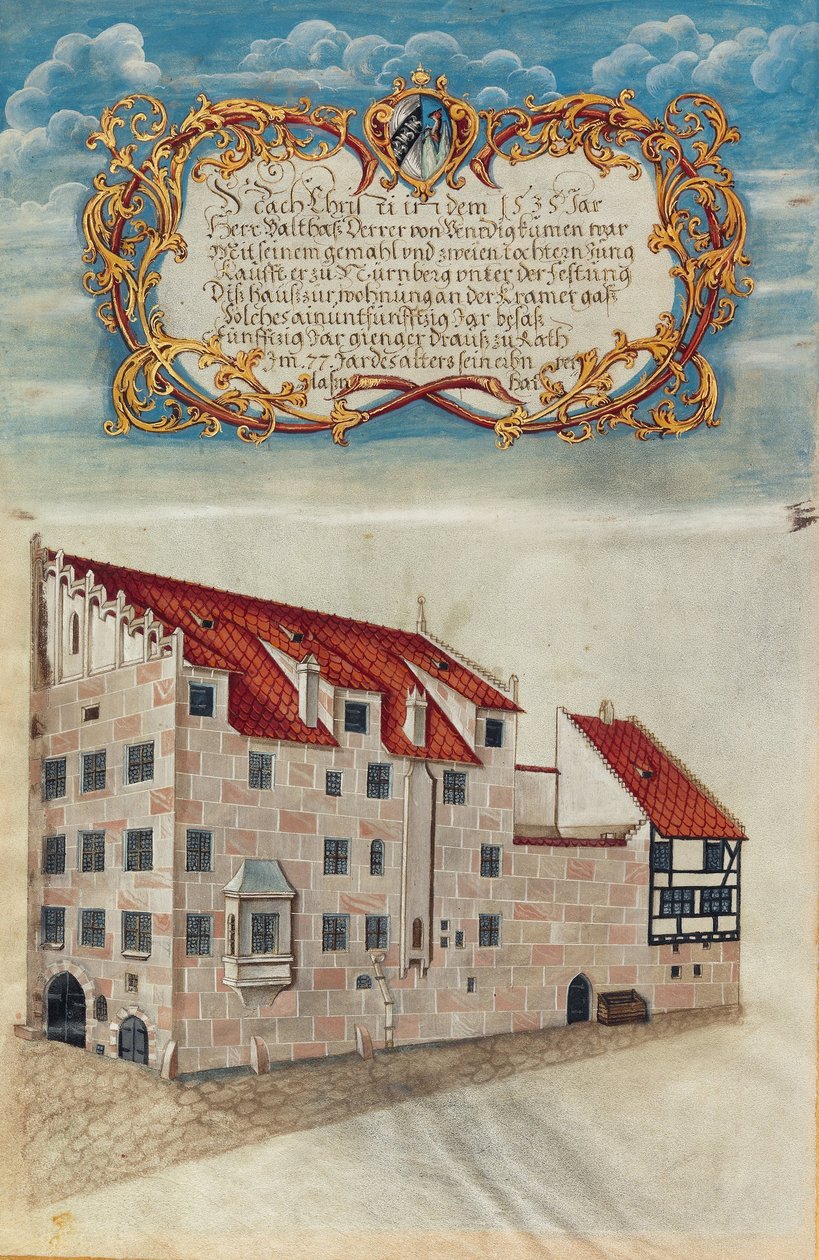 Nach Christi in dem 1535 Jar
Herr Balthasz Derrer von Venedig kumen war
Mit seinem gemahl vnd zweien töchtern Jung
Kaufft er zu Nürnberg vnter der festung
Disz hausz zur wohnung an der Kramer gasz
Solches ain unt fünfftzig Jar besasz
Fünfftzig Jar gieng er drausz zu Rath
Im 77 Jar des alters sein